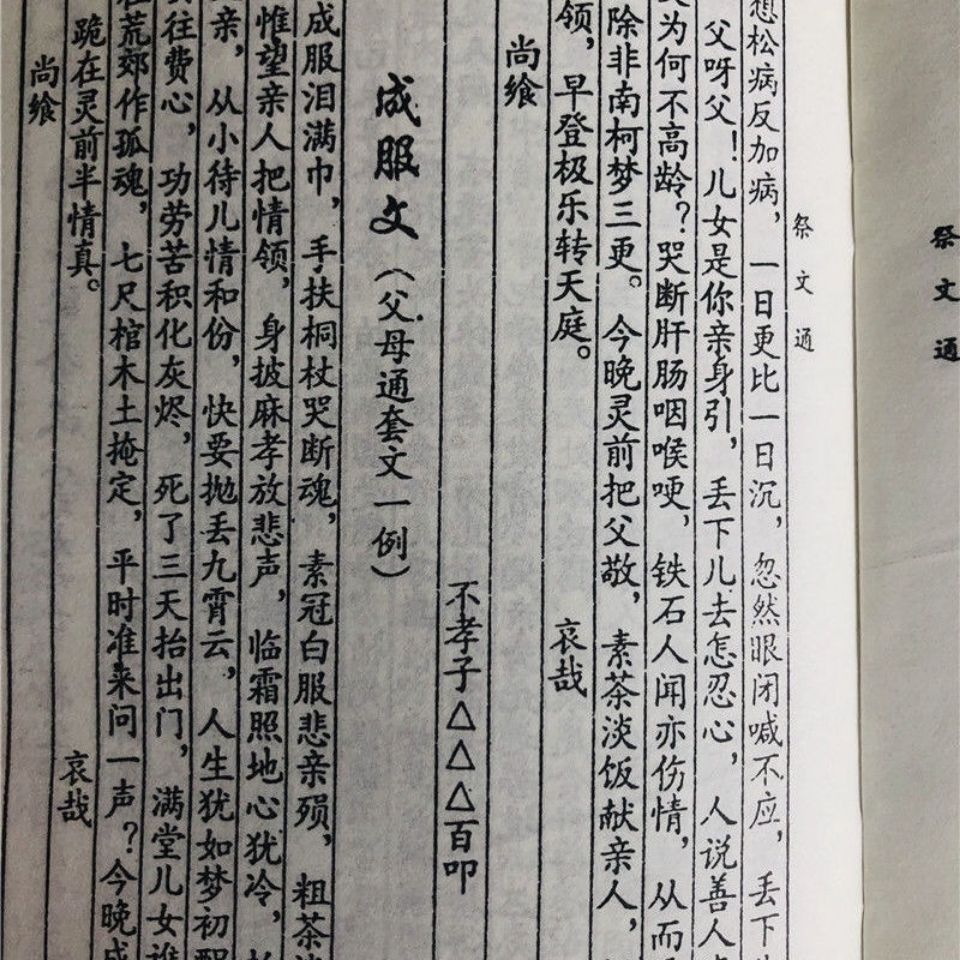 祭文通
祭文通
想松病反加病，一日更比一日沉，忽然眼闭喊不应，丢下
父呀父！儿女是你亲身引，丢下儿去怎忍心，人说善人
为何不高龄？哭断肝肠咽喉哽，铁石人闻亦伤情，从而
除非南柯梦三更。今晚灵前把父敬，素茶淡饭献亲人，
领，早登极乐转天庭。 哀哉
尚飨
不孝子△△△百叩
成服文（父母通套文一例）
成服泪满巾，手扶桐杖哭断魂，素冠白服悲亲殒，粗茶
惟望亲人把情领，身披麻孝放悲声，临霜照地心犹冷，
亲，从小待儿情和份，快要抛丢九霄云，人生犹如梦初
往费心，功劳苦积化灰烬，死了三天抬出门，满堂儿女谁
荒郊作孤魂，七尺棺木土掩定，平时准来问一声？今晚成
跪在灵前半情真。 哀哉
尚飨